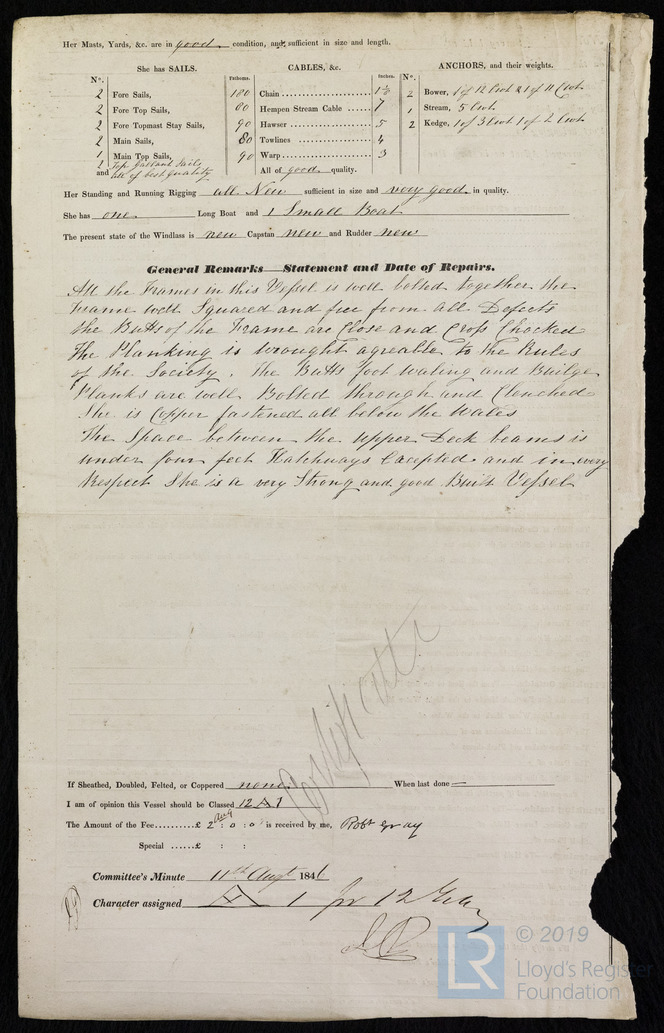 Her Masts, Yards, &c. are in good condition, and sufficient in size and length.
She has SAILS. CABLES, &c. ANCHORS, and their weights.
No. Fathoms. Inches. No.
2 Fore Sails, 180 Chain 2 Bower, 1 of 12 Cwt & 1 of 11 Cwt
2 Fore Top Sails, 80 Hempen Stream Cable 7 1 Stream, 5 Cwt
2 Fore Topmast Stay Sails, 90 Hawser 5 2 Kedge, 1 of 3 Cwt 1 of 2 Cwt
2 Main Sails, 80 Towlines 4
1 Main Top Sails, 90 Warp 3
and Top Gallant Sails all of best quality All of good quality.
Her Standing and Running Rigging all New sufficient in size and very good in quality.
She has one Long Boat and 1 Small Boat
The present state of the Windlass is new Capstan new and Rudder new
General Remarks—Statement and Date of Repairs.
All the Frames in this Vessel is well bolted together the
Frame well Squared and free from all Defects
the Butts of the Frame are Close and Cross Chocked
The Planking is wrought agreable to the Rules
of the Society. The Butts Foot Waling and Builge
Planks are well Bolted through and Clenched
She is Copper fastened all below the Wales
The Space between the upper Deck beams is
under four feet Hatchways Excepted and in every
Respect She is a very Strong and good Built Vessel
If Sheathed, Doubled, Felted, or Coppered none When last done —
I am of opinion this Vessel should be Classed 12 A 1
The Amount of the Fee £ 2 : 0 : 0 is received by me, Robt Gray
Special £ : :
Committee's Minute 11th Augt 1846
Character assigned A 1 for 12 Years
LR © 2019
Lloyd's Register
Foundation